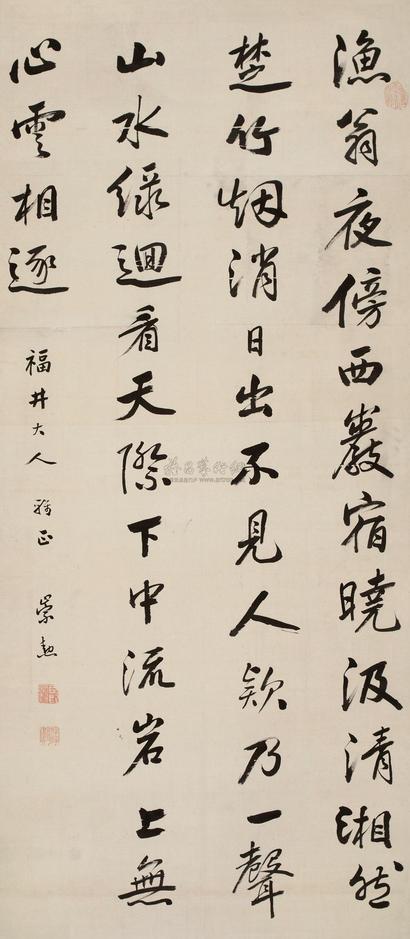 漁翁夜傍西巖宿曉汲清湘然
楚竹烟消日出不見人欸乃一聲
山水綠迴看天際下中流岩上無
心雲相逐
福井大人 雅正 崇勲